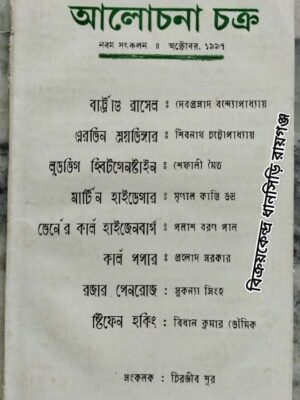 আলোচনা চক্র
নবম সংকলন ॥ অক্টোবর, ১৯৯৭
বার্ট্রাণ্ড রাসেল : দেবপ্রসাদ বন্দ্যোপাধ্যায়
এরভিন শ্রয়ডিঙ্গার : শিবনাথ চট্টোপাধ্যায়
লুডভিগ হ্বিটগেনস্টাইন : শেফালী মৈত্র
মার্টিন হাইডেগার : মৃণাল কান্তি ভদ্র
ভের্নের কার্ল হাইজেনবার্গ : পলাশ বরণ পাল
কার্ল পপার : প্রমোদ সরকার
রজার পেনরোজ : সুকন্যা সিংহ
স্টিফেন হকিং : বিধান কুমার ভৌমিক
সংকলক : চিরঞ্জীব শূর
বিক্রয়কেন্দ্র ধানসিড়ি রায়গঞ্জ